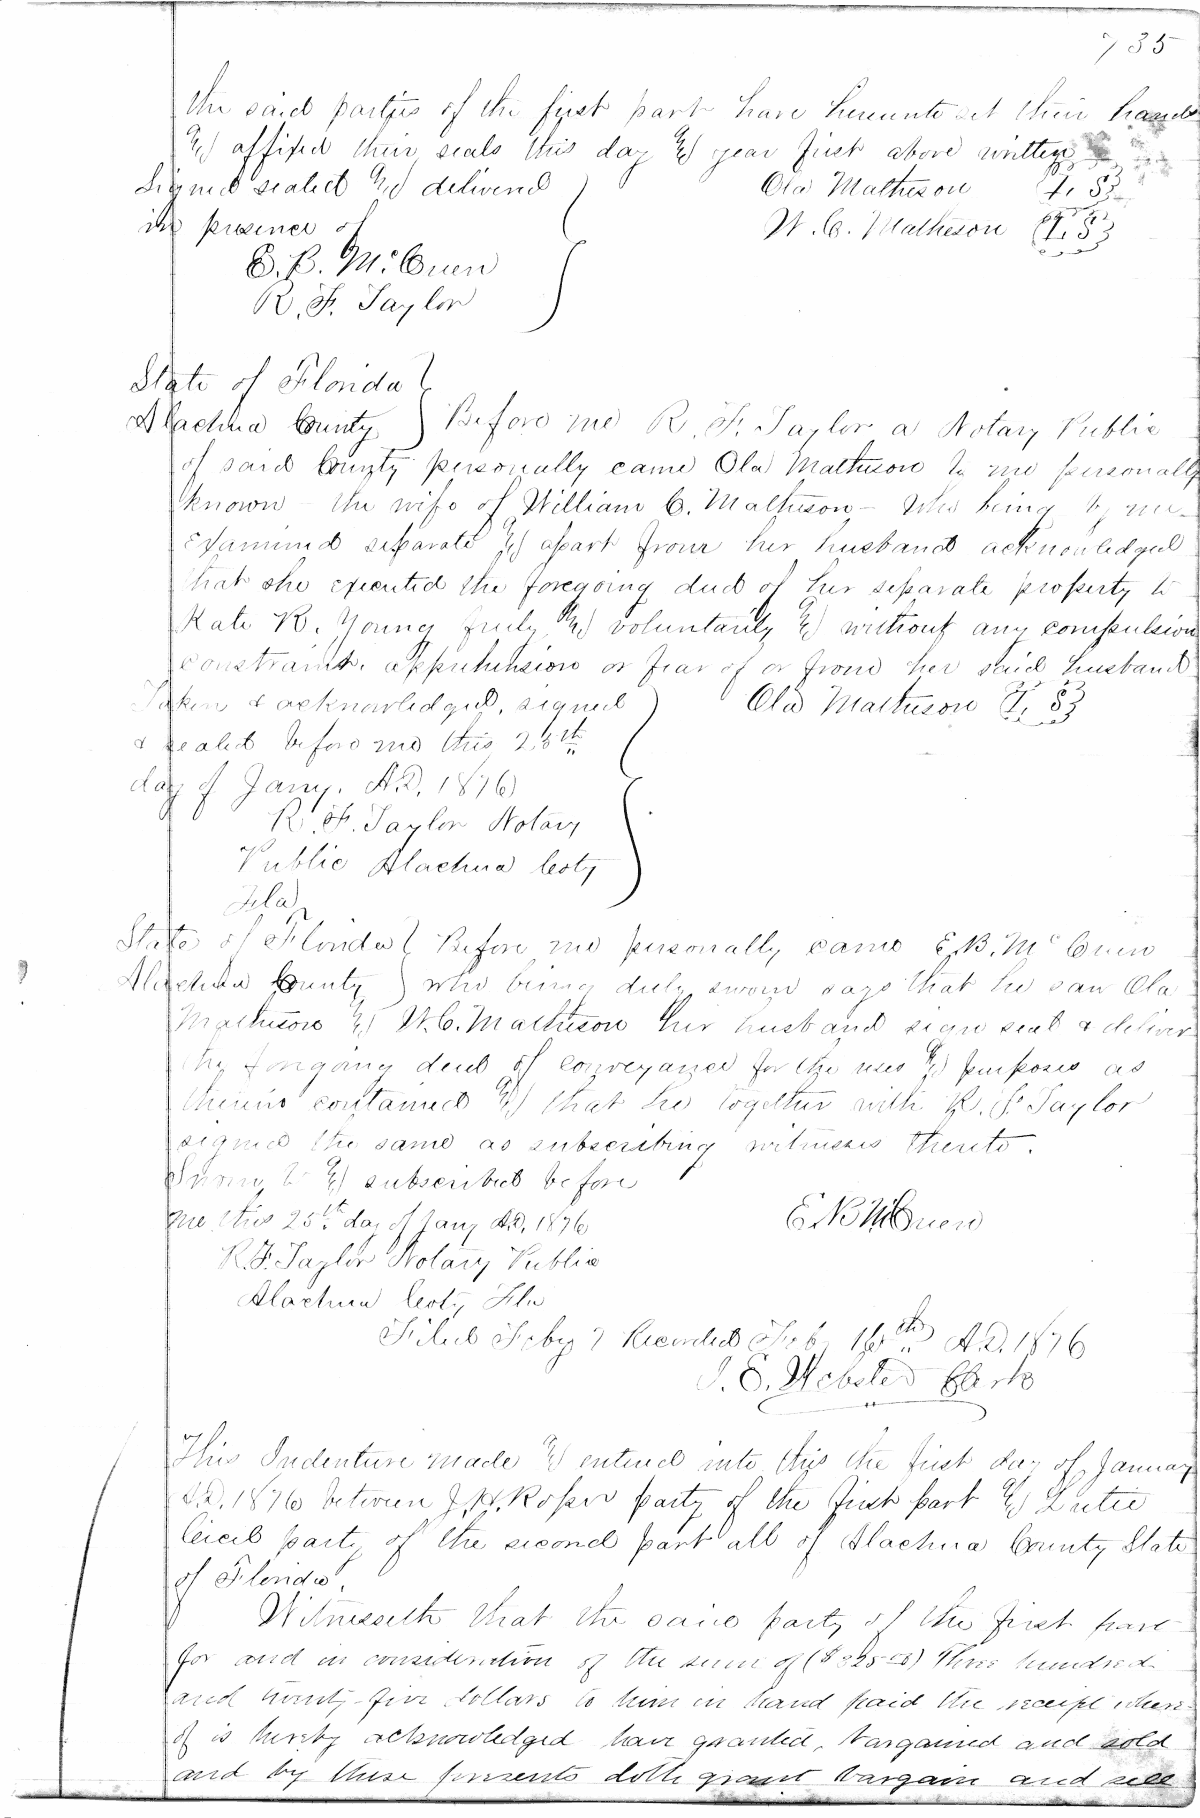 735
the said parties of the first part have hereunto set their hands
& affixed their seals this day & year first above written
Signed sealed & delivered Ola Matheson {L. S}
in presence of W. C. Matheson {L. S}
E. B. McCuen
R. F. Taylor
State of Florida
Alachua County Before me R. F. Taylor a Notary Public
of said County personally came Ola Matheson to me personally
known - the wife of William C. Matheson - who being by me
examined separate & apart from her husband acknowledged
that she executed the foregoing deed of her separate property to
Kate R. Young freely & voluntarily & without any compulsion
constraint, apprehension or fear of or from her said husband
Taken & acknowledged, signed Ola Matheson {L. S}
& sealed before me this 25th
day of Jany. A.D. 1876
R. F. Taylor Notary
Public Alachua Coty
Fla
State of Florida Before me personally came E. B. McCuen
Alachua County who being duly sworn says that he saw Ola
Matheson & W. C. Matheson her husband sign seal & deliver
the foregoing deed of conveyance for the uses & purposes as
therein contained & that he together with R. F. Taylor
signed the same as subscribing witnesses thereto.
Sworn to & subscribed before
me this 25th day of Jany A.D. 1876 E B McCuen
R. F. Taylor Notary Public
Alachua Coty Fla
Filed Feby 7 Recorded Feby 16th A.D. 1876
J. E. Webster Clerk
This Indenture made & entered into this the first day of January
A.D. 1876 between J. H. Roper party of the first part & Lutie
Cicil party of the second part all of Alachua County State
of Florida.
Witnesseth that the said party of the first part
for and in consideration of the sum of ($325.00) Three hundred
and twenty-five dollars to him in hand paid the receipt where-
of is hereby acknowledged have granted, bargained and sold
and by these presents doth grant bargain and sell